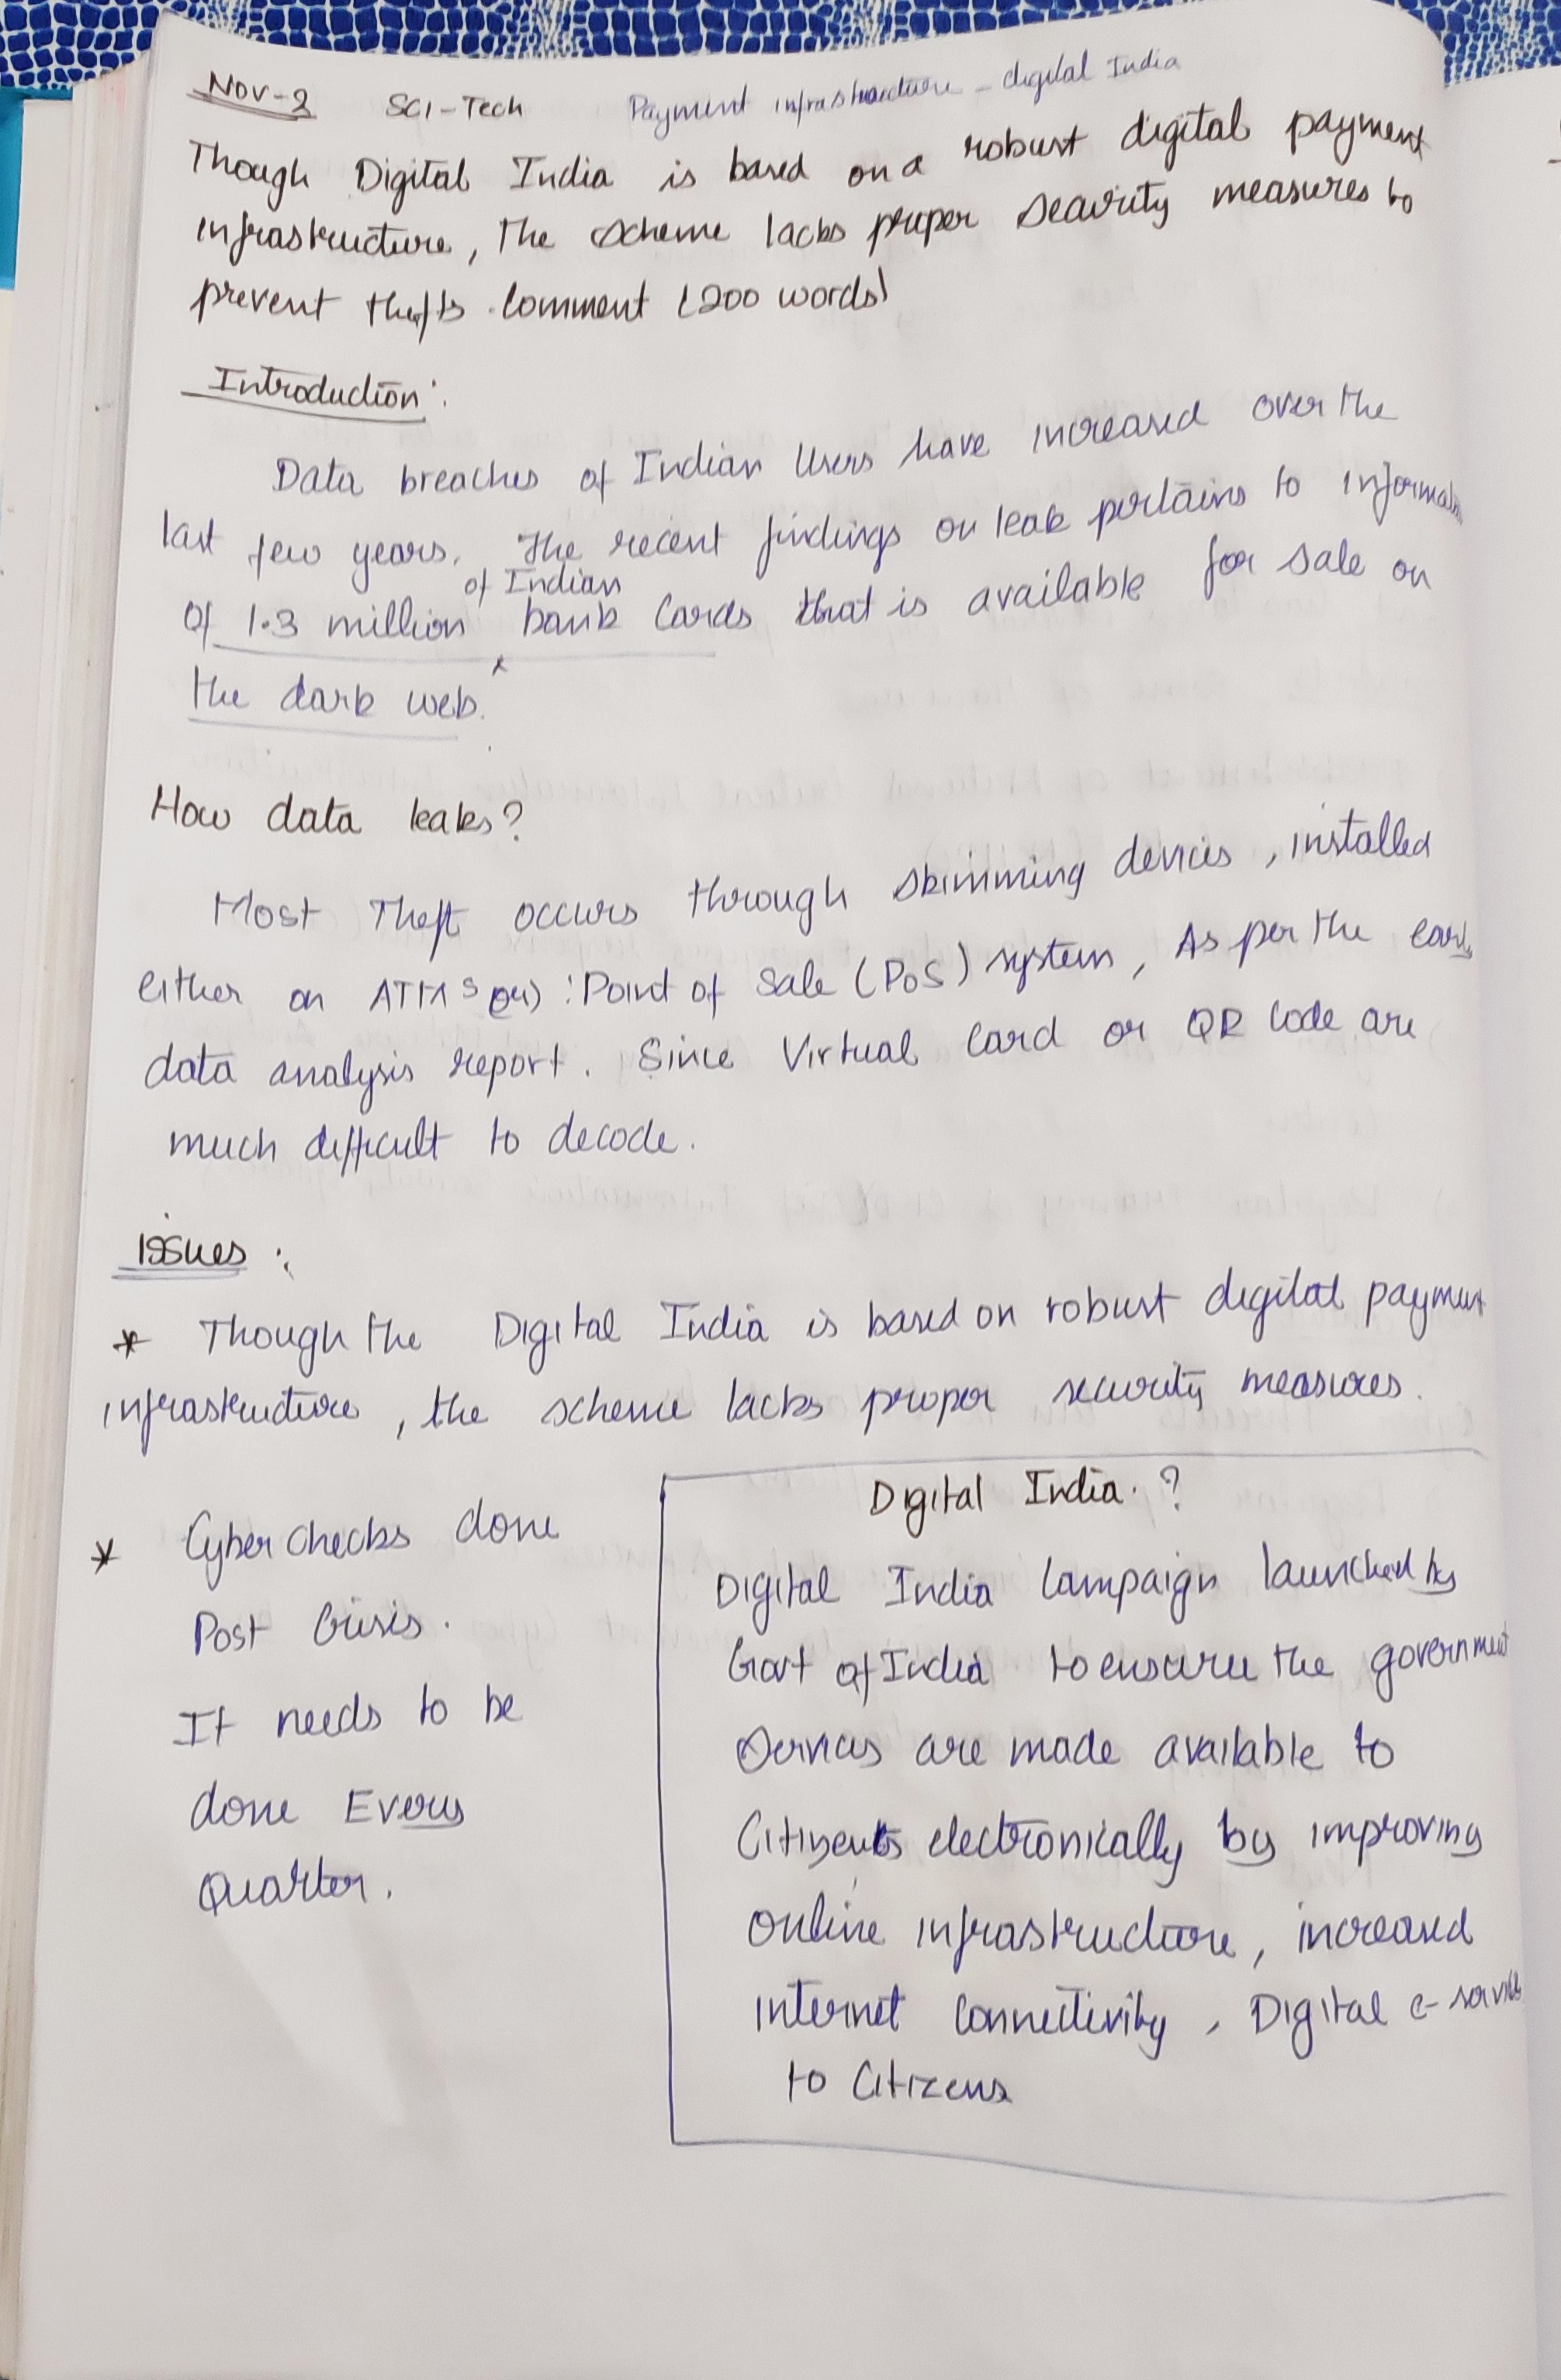 Nov-2 SCI-Tech Payment infrastructure - digital India
Though Digital India is based on a robust digital payment
infrastructure, the scheme lacks proper security measures to
prevent thefts. Comment (200 words)
Introduction:
Data breaches of Indian Users have increased over the
last few years. The recent findings on leak pertains to
of Indian
of 1.3 million bank Cards that is available for sale on
the dark web.
How data leaks?
Most Theft occurs through skimming devices, installed
either on ATMs (or) Point of Sale (PoS) system, As per the card
data analysis report. Since Virtual Card or QR Code are
much difficult to decode.
Issues :
* Though the Digital India is based on robust digital payment
infrastructure, the scheme lacks proper security measures.
* Cyber checks done
Post Crisis.
It needs to be
done Every
Quarter.
Digital India. ?
Digital India Campaign launched by
Govt of India to ensure the government
Services are made available to
Citizens electronically by improving
online infrastructure, increased
internet Connectivity, Digital e-services
to Citizens